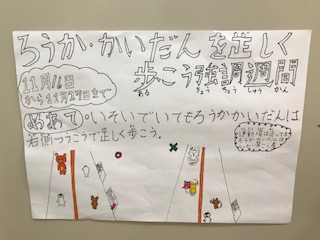 ろうか・かいだんを正しく
歩こう強調週間
ある きょう ちょう しゅう かん
11月16日
から11月27日まで
めあて。いそいでいてもろうかかいだんは
右側つうこうで正しく歩こう。